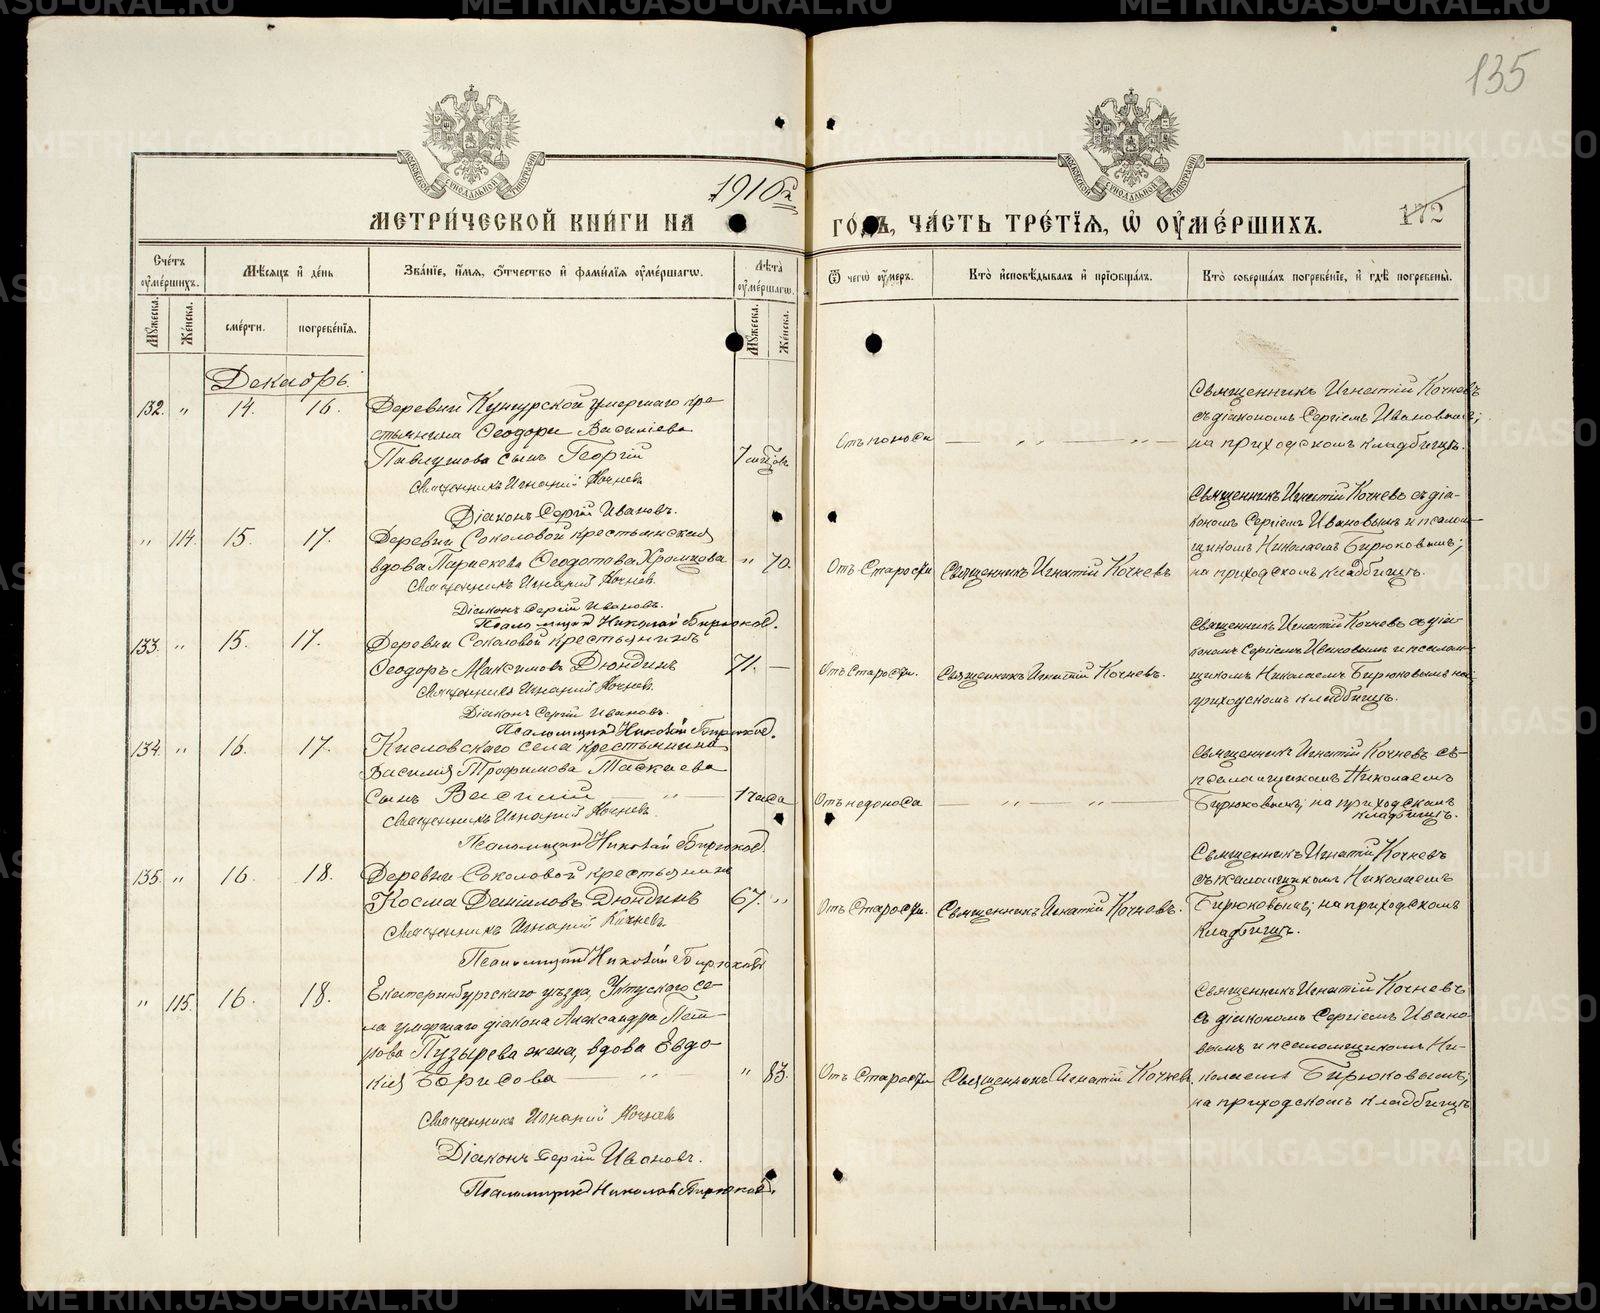 135
МОСКОВСКОЙ СѴНОДАЛЬНОЙ ТИПОГРАФІИ
МОСКОВСКОЙ СѴНОДАЛЬНОЙ ТИПОГРАФІИ
1916 г.
172
МЕТРИ́ЧЕСКОЙ КНИ́ГИ НА ГО́ДЪ, ЧА́СТЬ ТРЕ́ТЇѦ, Ѡ҆ ОУ҆МЕ́РШИХЪ.
Сче́тъ оу҆ме́ршихъ.
Мѣ́сѧцъ и҆ де́нь
Зва́нїе, и҆́мѧ, ѻ҆́тчество и҆ фами́лїѧ оу҆ме́ршагѡ.
Лѣ́та оу҆ме́ршагѡ.
Ѿ чегѡ̀ оу҆́меръ.
Кто̀ и҆сповѣ́дывалъ и҆ прїѡбща́лъ.
Кто̀ соверша́лъ погребе́нїе, и҆ гдѣ̀ погребены̀.
Мꙋ́жеска.
Же́нска.
сме́рти.
погребе́нїѧ.
Мꙋ́жеска.
Же́нска.
Декабрь.
132. " 14. 16.
Деревни Кунгурской умершаго кре-
стьянина Ѳеодора Василіева
Павлушова сынъ Георгій
7 мѣсяцовъ
Священникъ Игнатій Кочневъ
Діаконъ Сергій Ивановъ.
Отъ поноса — " — " —
Священникъ Игнатій Кочневъ
съ діакономъ Сергіемъ Ивановымъ;
на приходскомъ кладбищѣ.
" 114. 15. 17.
Деревни Соколовой крестьянская
вдова Параскева Ѳеодотова Хромцова " 70.
Священникъ Игнатій Кочневъ.
Діаконъ Сергій Ивановъ.
Псаломщикъ Николай Бирюковъ.
Отъ старости
Священникъ Игнатій Кочневъ
Священникъ Игнатій Кочневъ съ діа-
кономъ Сергіемъ Ивановымъ и псалом-
щикомъ Николаемъ Бирюковымъ;
на приходскомъ кладбищѣ.
133. " 15. 17.
Деревни Соколовой крестьянинъ
Ѳеодоръ Максимовъ Дюндинъ 71. —
Священникъ Игнатій Кочневъ.
Діаконъ Сергій Ивановъ.
Псаломщикъ Николай Бирюковъ.
Отъ старости.
Священникъ Игнатій Кочневъ.
Священникъ Игнатій Кочневъ съ діа-
кономъ Сергіемъ Ивановымъ и псалом-
щикомъ Николаемъ Бирюковымъ на
приходскомъ кладбищѣ.
134. " 16. 17.
Кисловскаго села крестьянина
Василія Трофимова Таскаева
сынъ Василій — " — 1 часа
Священникъ Игнатій Кочневъ.
Псаломщикъ Николай Бирюковъ.
Отъ недоноса — " — " —
Священникъ Игнатій Кочневъ съ
псаломщикомъ Николаемъ
Бирюковымъ; на приходскомъ
кладбищѣ.
135. " 16. 18.
Деревни Соколовой крестьянинъ
Косма Даніиловъ Дюндинъ 67. "
Священникъ Игнатій Кочневъ.
Псаломщикъ Николай Бирюковъ
Отъ старости.
Священникъ Игнатій Кочневъ.
Священникъ Игнатій Кочневъ
съ псаломщикомъ Николаемъ
Бирюковымъ; на приходскомъ
кладбищѣ.
" 115. 16. 18.
Екатеринбургскаго уѣзда, Уктусскаго се-
ла умершаго діакона Александра Пет-
рова Пузырева жена, вдова Евдо-
кія Борисова — " — " 83.
Священникъ Игнатій Кочневъ
Діаконъ Сергій Ивановъ.
Псаломщикъ Николай Бирюковъ.
Отъ старости
Священникъ Игнатій Кочневъ
Священникъ Игнатій Кочневъ
съ діакономъ Сергіемъ Ивано-
вымъ и псаломщикомъ Ни-
колаемъ Бирюковымъ;
на приходскомъ кладбищѣ
METRIKI.GASO-URAL.RU